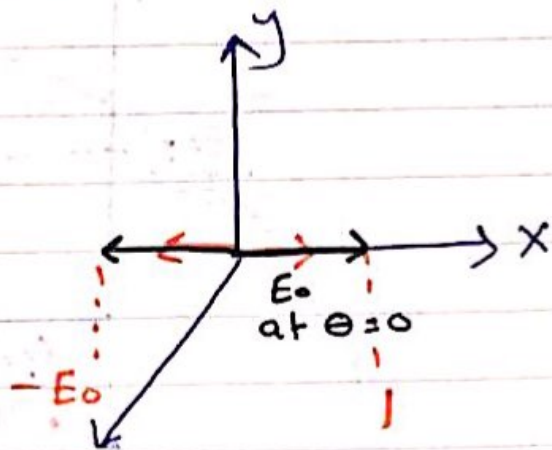 y
x
E₀
at θ = 0
-E₀